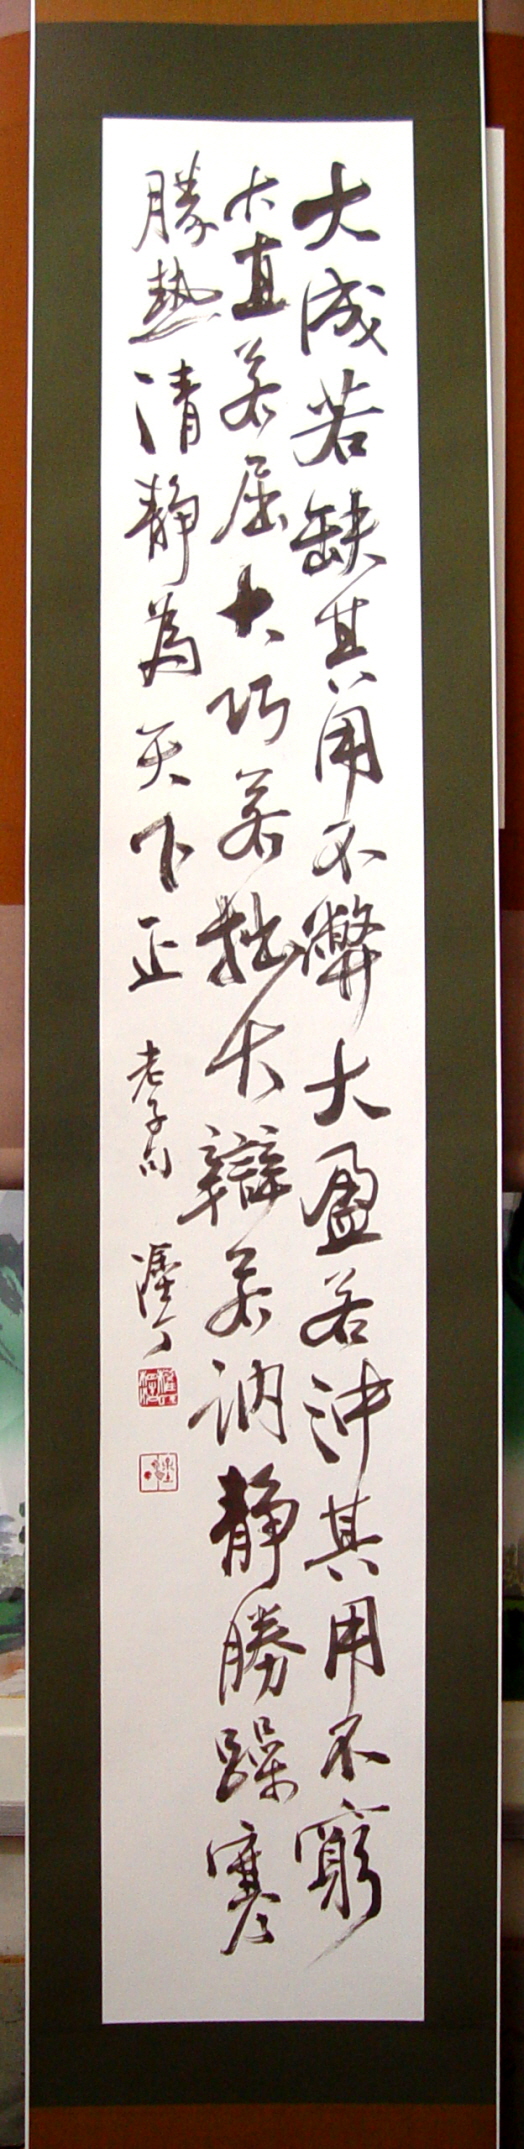 大成若缺其用不弊大盈若沖其用不窮
大直若屈大巧若拙大辯若訥靜勝躁寒
勝熱清靜為天下正 老子句